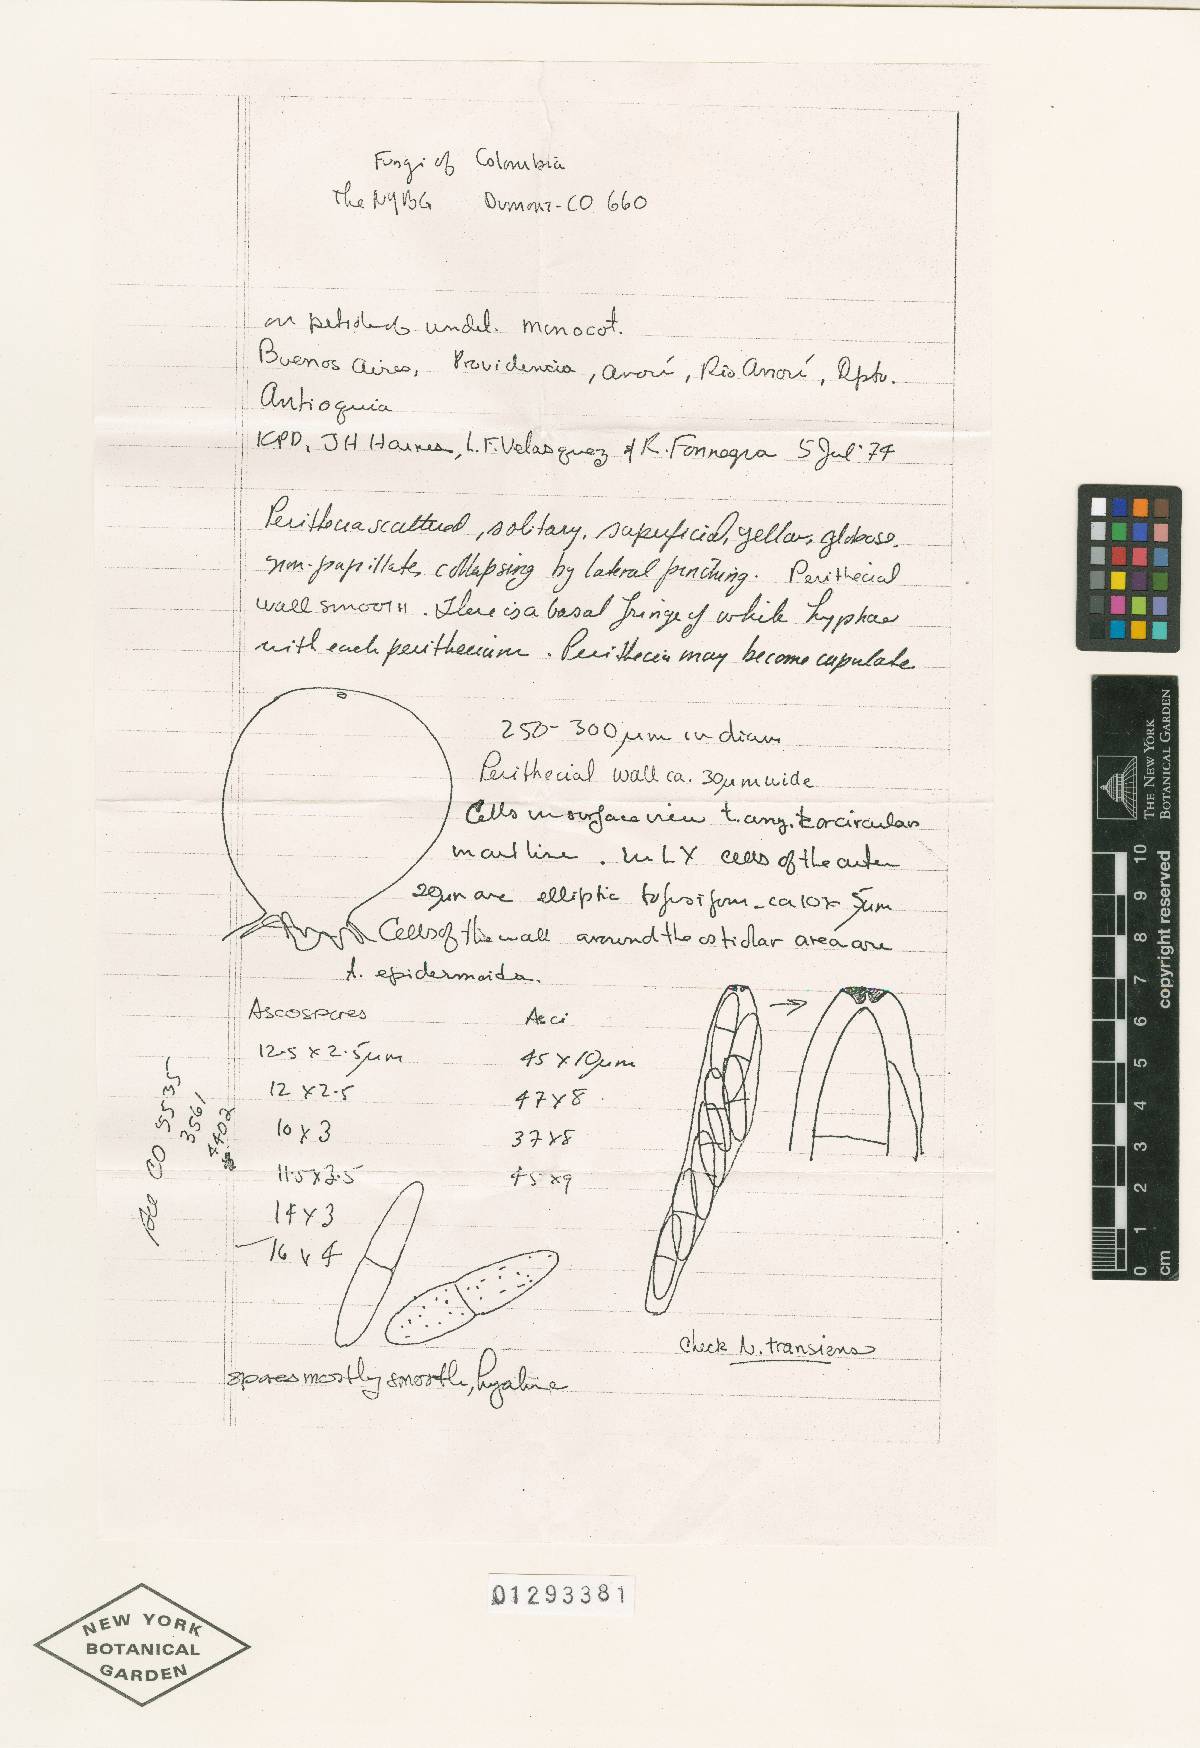 Fungi of Colombia
The NYBG Dumont-CO 660
on petiole of undet. monocot.
Buenos Aires, Providencia, Anorí, Río Anorí, Dpto.
Antioquia
KPD, JH Haines, L.F. Velasquez & R. Fonnegra 5 Jul '74
Perithecia scattered, solitary, superficial, yellow, globose,
non-papillate, collapsing by lateral pinching. Perithecial
wall smooth. There is a basal fringe of white hyphae
with each perithecium. Perithecia may become cupulate
250-300 µm in diam
Perithecial wall ca. 30 µm wide
Cells in surface view t. ang. to circular
in outline. In LX cells of the outer
20µm are elliptic to fusiform - ca 10 x 5µm
Cells of the wall around the ostiolar area are
t. epidermoida.
Ascospores Asci
12.5 x 2.5µm 45 x 10µm
12 x 2.5 47 x 8
10 x 3 37 x 8
11.5 x 3.5 45 x 9
14 x 3
16 x 4
CO 5535
3561
4402
spores mostly smooth, hyaline
Check N. transiens
01293381
NEW YORK
BOTANICAL
GARDEN
THE NEW YORK
BOTANICAL GARDEN
copyright reserved
10 9 8 7 6 5 4 3 2 1 0
cm